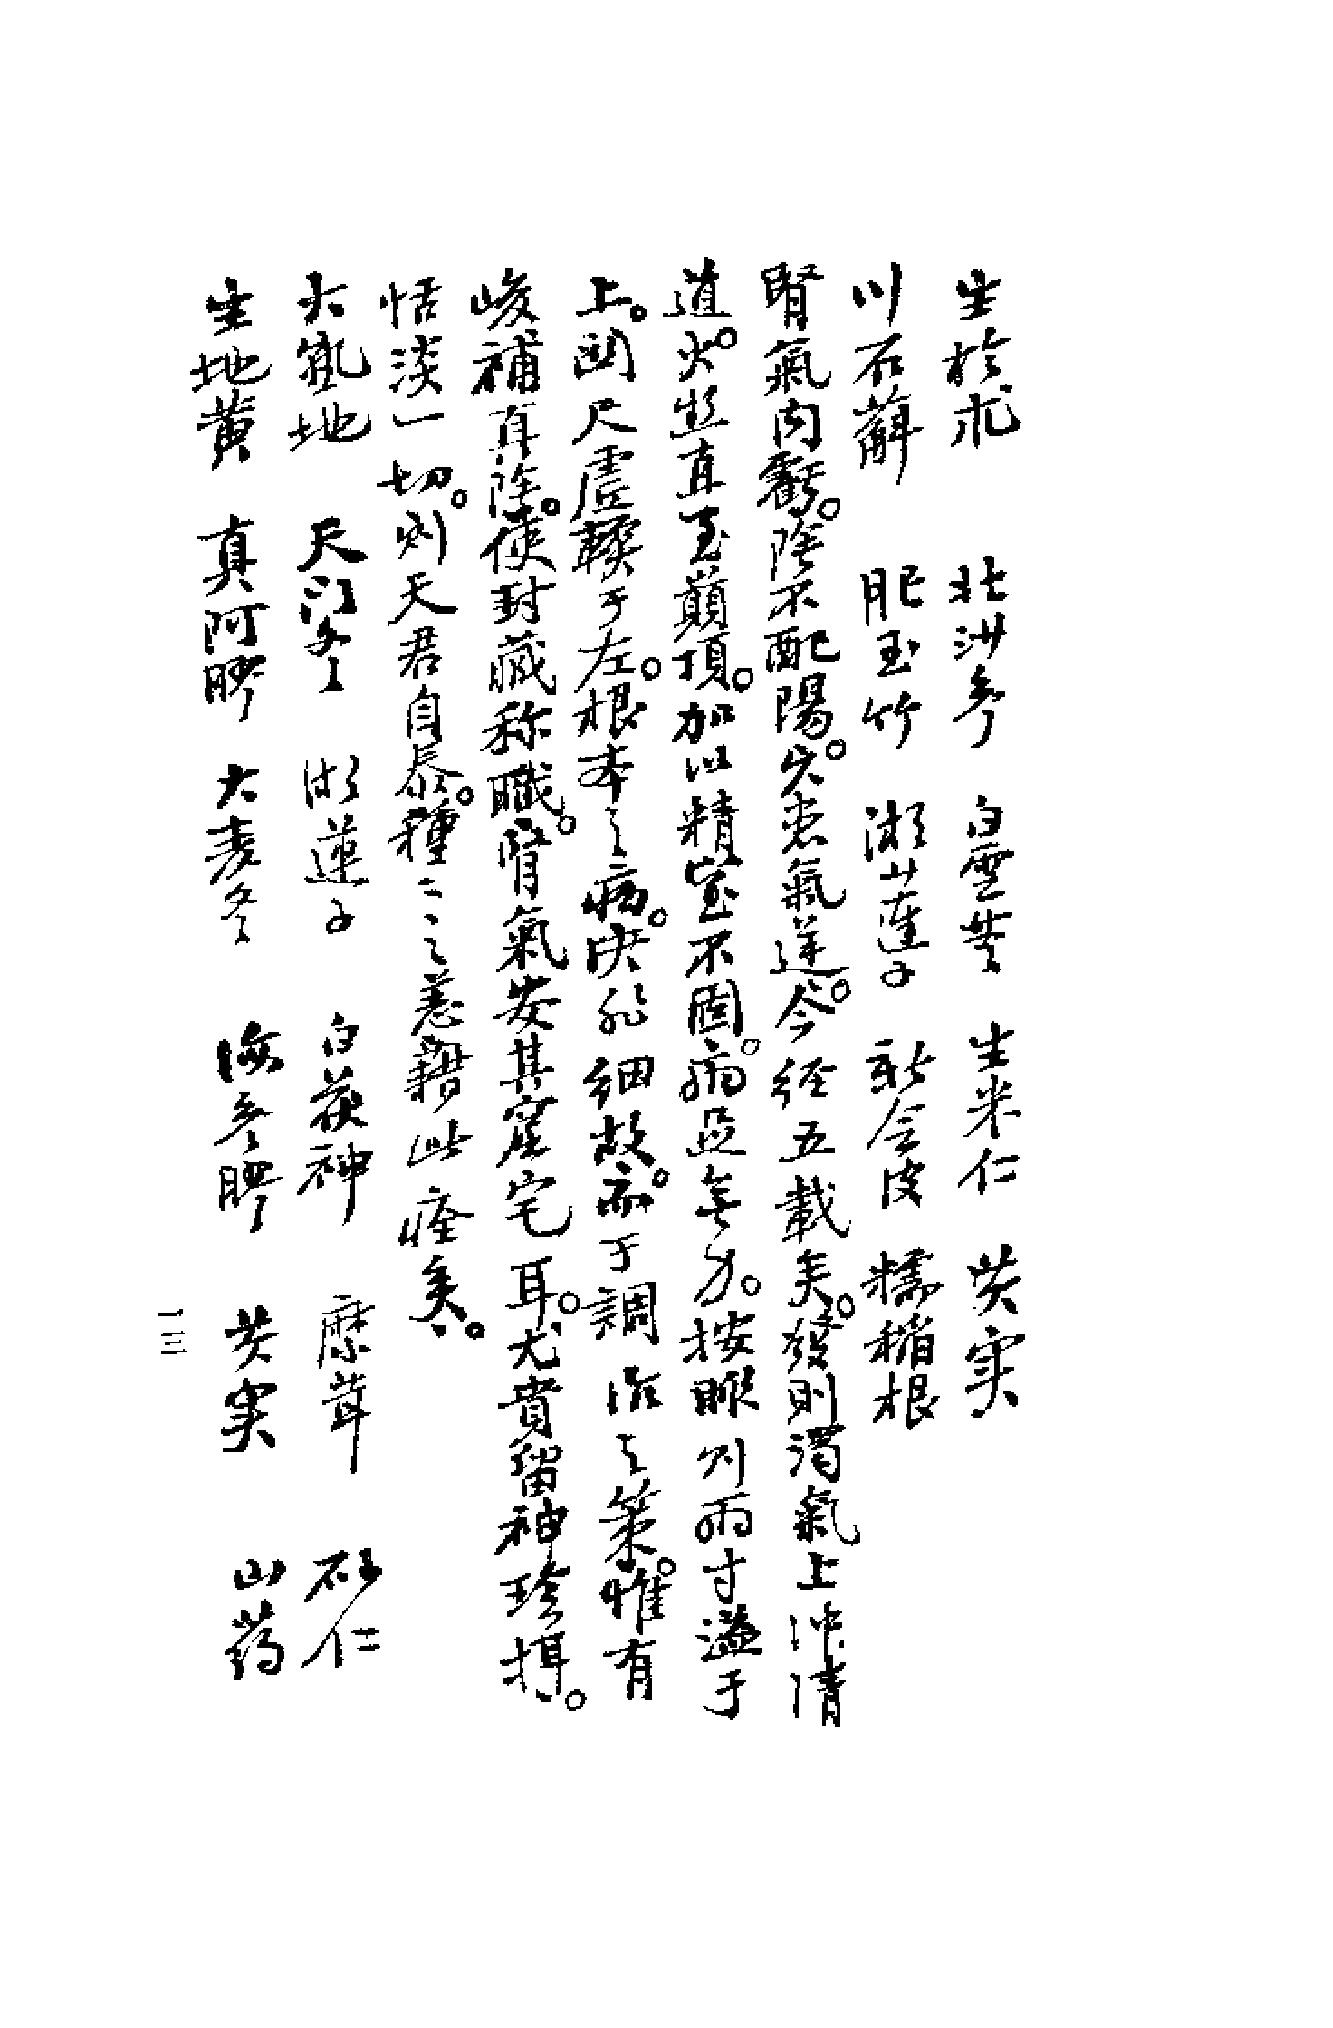 生於朮　北沙參　白雲苓　生米仁　芡實
川石斛　肥玉竹　湖蓮子　新会皮　糯稻根
腎氣内虧。陰不配陽。失患氣逆。今経五載矣。發則濁氣上沖清
道。火迯直至巔頂。加以精室不固。痛益無方。按脈則兩寸溢于
上。関尺虛軟于左。根本之病。決非細故。而于調治之策。惟有
峻補真陰。使封藏称職。腎氣安其窟宅耳。尤貴留神珍摂。
恬淡一切。則天君自泰。種〻之恙藉此痊矣。
大熟地　天門冬　湖蓮子　白茯神　麋茸　砂仁
生地黄　真阿膠　大麦冬　海參膠　芡実　山药
一三